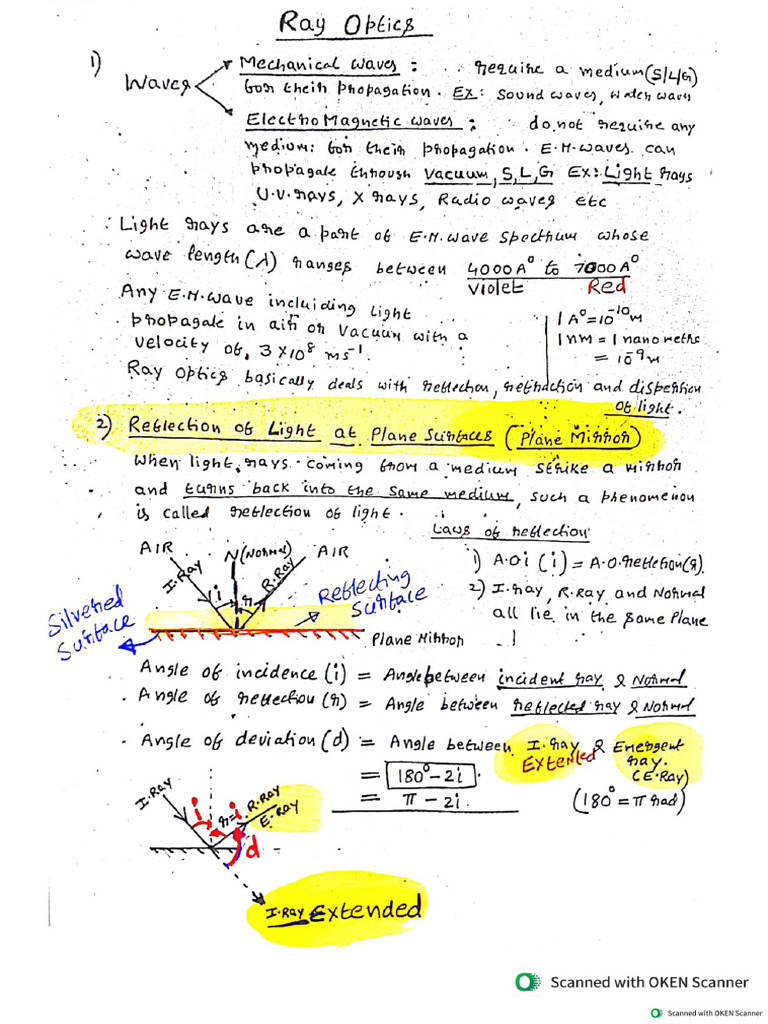 Ray Optics
1) Waves
Mechanical waves : require a medium (S/L/G)
for their propagation. Ex: Sound waves, Water wave
Electro Magnetic waves : do not require any
medium: for their propagation. E.M.waves can
propagate through Vacuum, S, L, G Ex: Light rays
U.V.rays, X rays, Radio waves etc
Light rays are a part of E.M.wave spectrum whose
wave length (λ) ranges between 4000A° to 7000A°
Violet Red
Any E.M.wave incluiding Light
propagate in air or vacuum with a
velocity of, 3×10⁸ ms⁻¹.
1A°=10⁻¹⁰m
1nm=1 nanometre
= 10⁻⁹m
Ray Optics basically deals with reflection, refraction and dispersion
of light.
2) Reflection of Light at Plane Surfaces (Plane Mirror)
When light rays coming from a medium strike a mirror
and turns back into the same medium, such a phenomenon
is called reflection of light.
Laws of reflection
1) A.O.i (i) = A.O.reflection(r).
2) I.ray, R.Ray and Normal
all lie in the same Plane
AIR N(Normal) AIR
I.Ray R.Ray
i r
Silvered
Surface
Reflecting
Surface
Plane Mirror
Angle of incidence (i) = Angle between incident ray & Normal
Angle of reflection (r) = Angle between reflected ray & Normal
Angle of deviation (d) = Angle between I.ray & Emergent
Extended ray.
(E.Ray)
= 180°-2i
= π-2i. (180°=π rad)
I.Ray i r=i R.Ray
E.Ray
d
I.Ray Extended
Scanned with OKEN Scanner
Scanned with OKEN Scanner